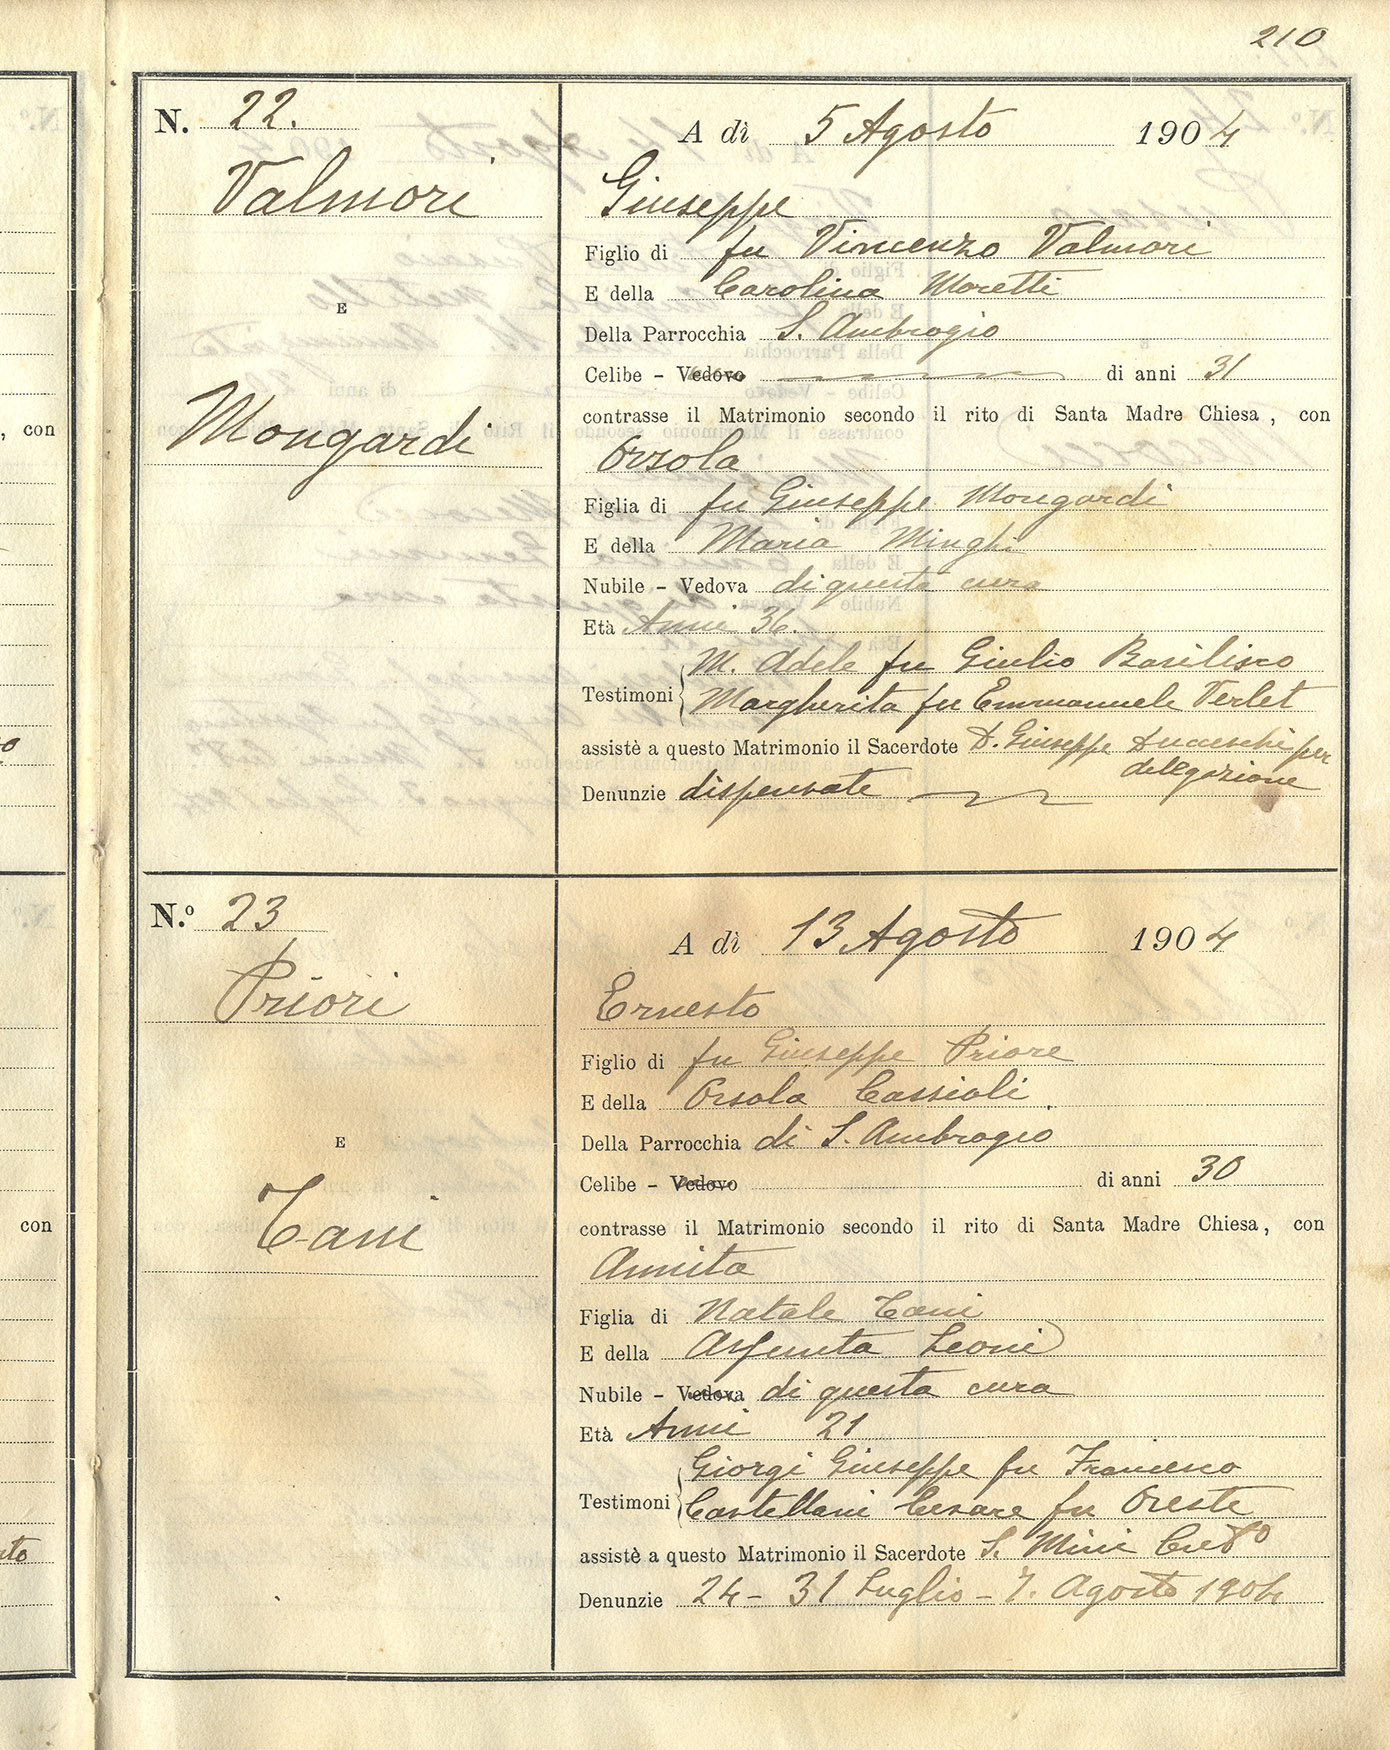 210
N. 22.
Valmori
E
Mongardi
A dì 5 Agosto 1904
Giuseppe
Figlio di fu Vincenzo Valmori
E della Carolina Moretti
Della Parrocchia S. Ambrogio
Celibe - Vedovo di anni 31
contrasse il Matrimonio secondo il rito di Santa Madre Chiesa, con
Orsola
Figlia di fu Giuseppe Mongardi
E della Maria Minghi
Nubile - Vedova di questa cura
Età Anni 36.
M. Adele fu Giulio Basilisco
Testimoni
Margherita fu Emmanuele Verlet
assistè a questo Matrimonio il Sacerdote D. Giuseppe Duceschi per
delegazione
Denunzie dispensate
N.º 23
Priori
E
Tani
A dì 13 Agosto 1904
Ernesto
Figlio di fu Giuseppe Priore
E della Orsola Cassioli
Della Parrocchia di S. Ambrogio
Celibe - Vedovo di anni 30
contrasse il Matrimonio secondo il rito di Santa Madre Chiesa, con
Annita
Figlia di Natale Tani
E della Assunta Leoni
Nubile - Vedova di questa cura
Età Anni 21
Giorgi Giuseppe fu Francesco
Testimoni
Castellani Cesare fu Oreste
assistè a questo Matrimonio il Sacerdote S. Mini
Denunzie 24 - 31 Luglio - 7. Agosto 1904
con
con